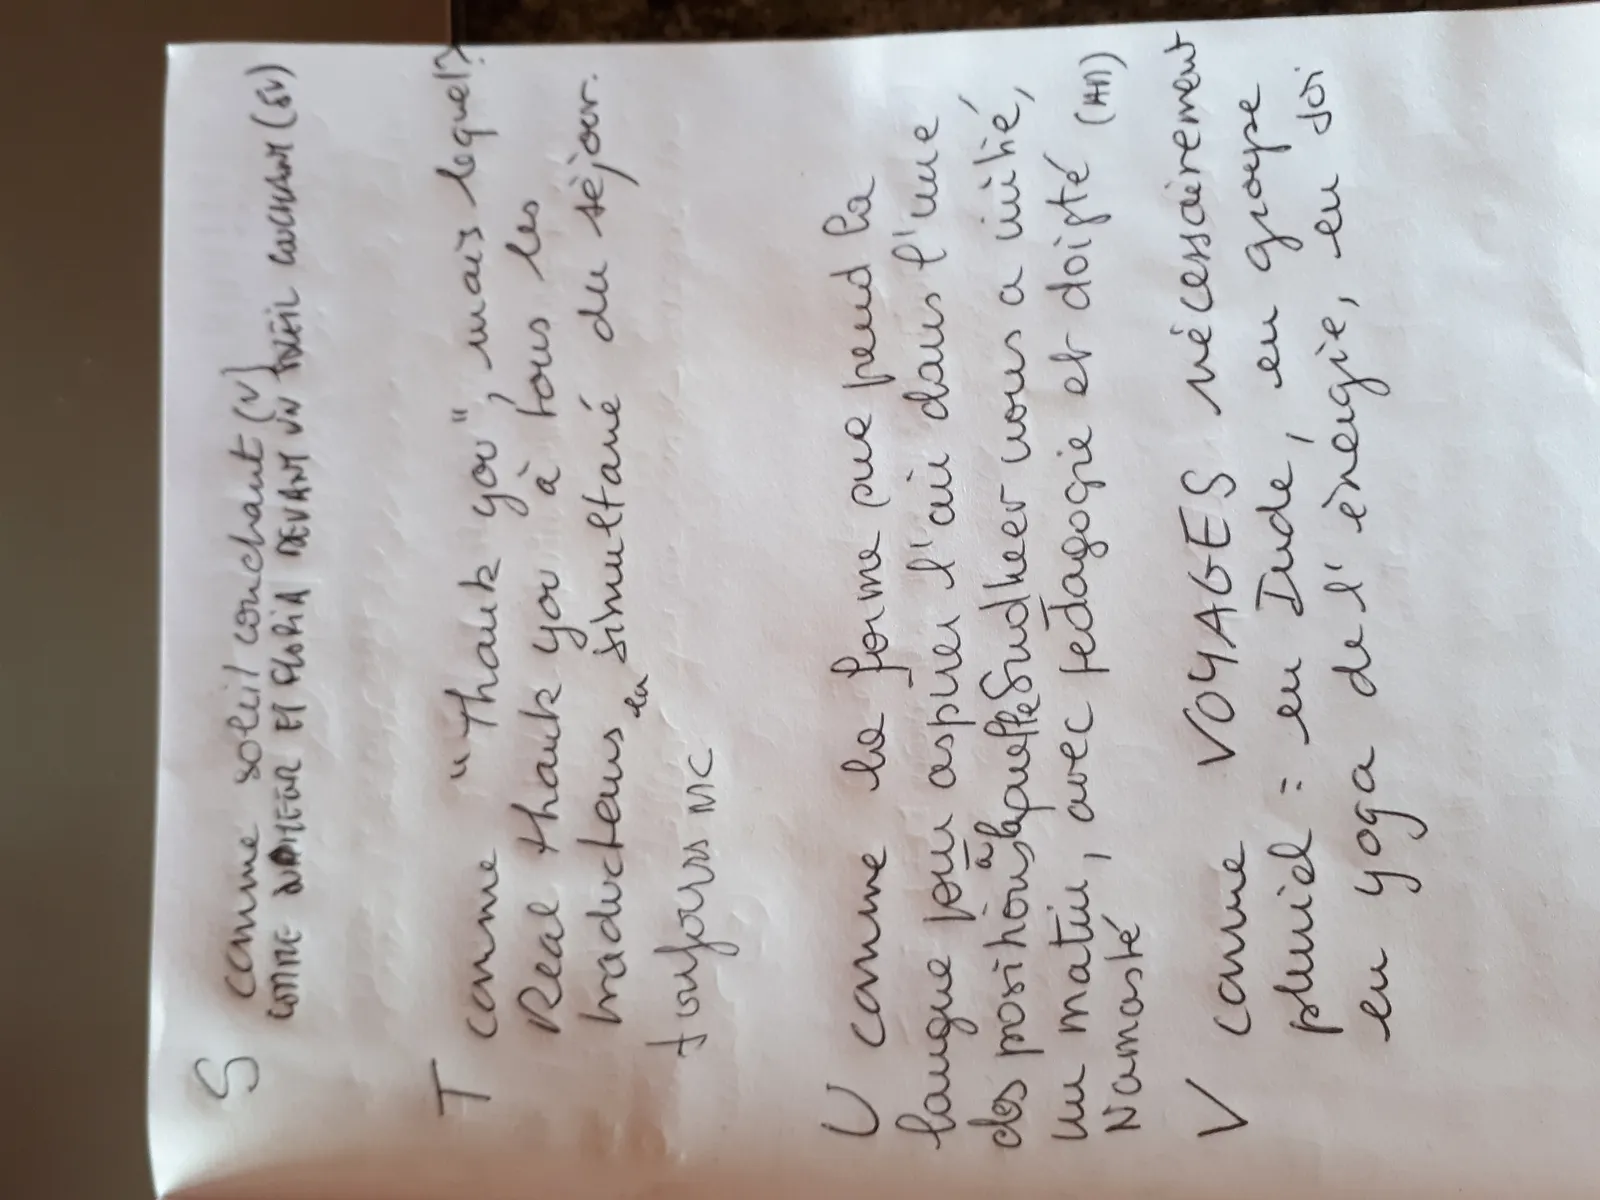 S comme soleil couchant (V)
COMME ET GLORIA DEVANT UN SOLEIL COUCHANT (SV)
T comme "Thank you", mais lequel?
Real thank you à tous les
traducteurs en simultané du séjour.
toujours MC
U comme la forme que prend la
langue pour aspirer l'air dans l'une
des positions à laquelle Sudheer nous a initié,
un matin, avec pédagogie et doigté (AM)
Namasté
V comme VOYAGES nécessairement
pluriel = en Inde, en groupe
en yoga de l'énergie, en soi